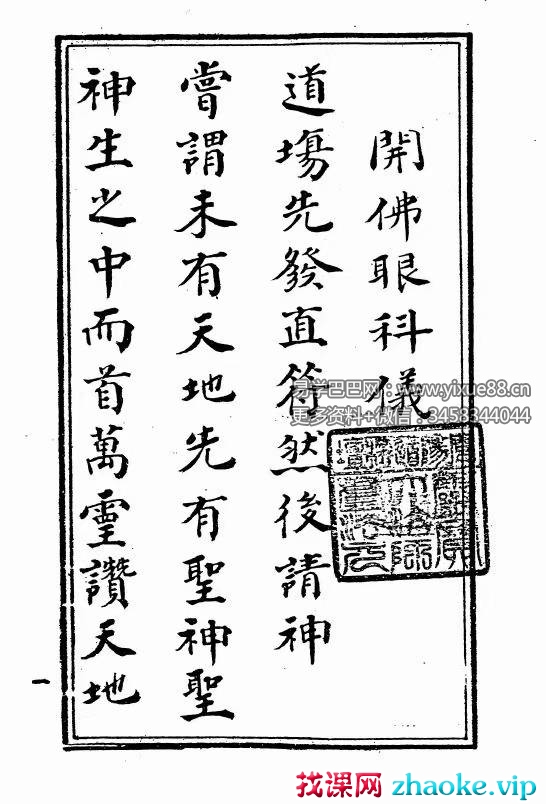 開佛眼科儀
道場先發直符然後請神
嘗謂未有天地先有聖神聖
神生之中而首萬靈讚天地
一
易学巴巴网 www.yixue88.cn
更多资料+微信：3453344044
找课网 zhaoke.vip